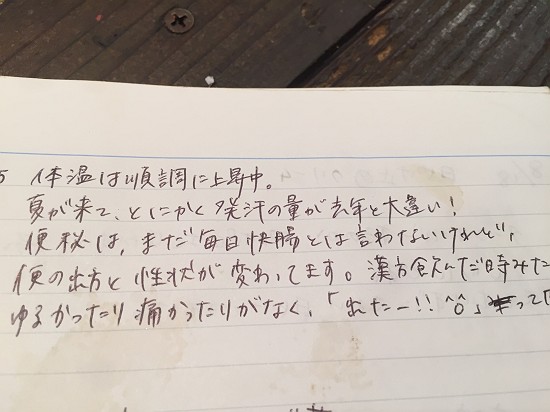 5 体温は順調に上昇中。
夏が来て、とにかく発汗の量が去年と大違い!
便秘は、まだ毎日快腸とは言わないけれど、
便の出方と性状が変わってます。漢方飲んだ時みた
ゆるかったり痛かったりがなく、「出たー!!^o^」って